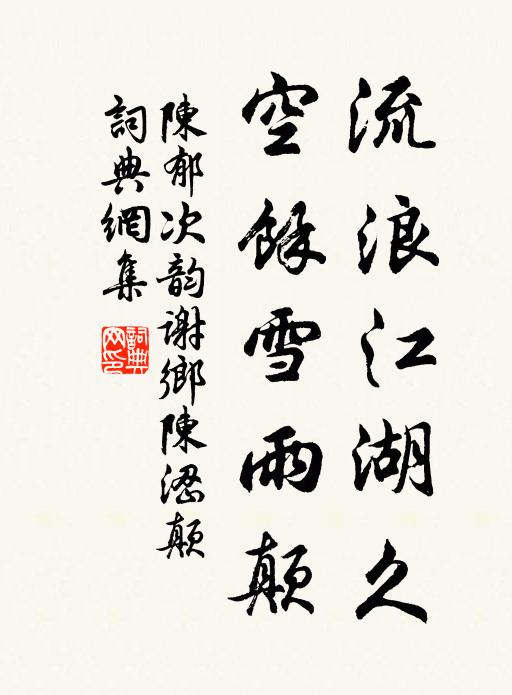 流浪江湖久
空餘雪雨顛
陳郁次韵謝鄉陳潖顛
詞典網集
詞典網印